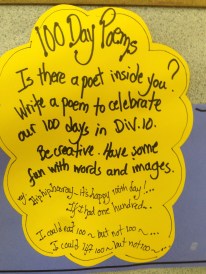 100 Day Poems
Is there a poet inside you?
Write a poem to celebrate
our 100 days in Div.10.
Be creative. Have some
fun with words and images.
eg. Hip hip hooray - it's happy 100th day!...
If I had one hundred...
I could eat 100 ~ but not 100 ~...
I could lift 100 ~ but not 100 ~...